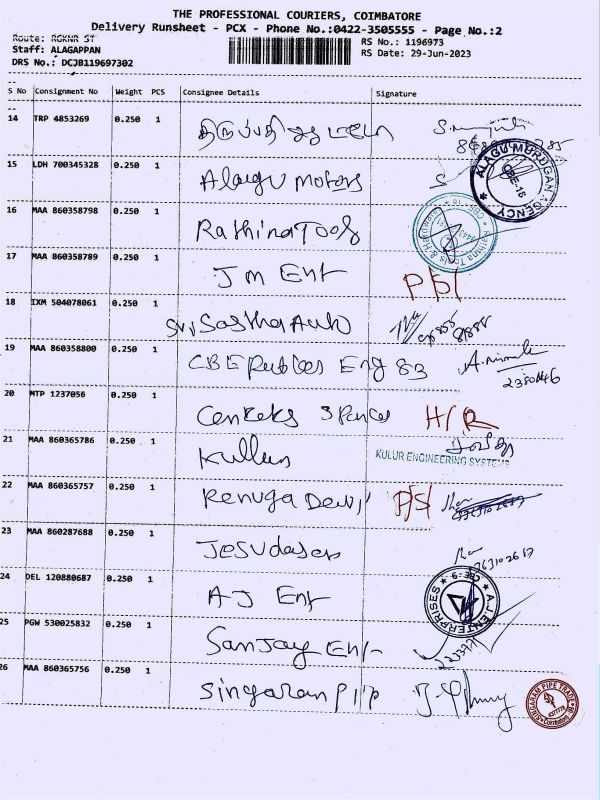 THE PROFESSIONAL COURIERS, COIMBATORE
Delivery Runsheet - PCX - Phone No.:0422-3505555 - Page No.:2
Route: RGKNR ST
RS No.: 1196973
Staff: ALAGAPPAN
RS Date: 29-Jun-2023
DRS No.: DCJB119697302
S No Consignment No Weight PCS Consignee Details Signature
14 TRP 4853269 0.250 1
15 LDH 700345328 0.250 1 Alagu Motors
ALAGU MURUGAN AGENCY CBE-18
16 MAA 860358798 0.250 1 Rathina Tools
17 MAA 860358789 0.250 1 J m Ent P/S/
18 IXM 504078061 0.250 1 Sri Sastha Auto
19 MAA 860358800 0.250 1 CBE Rubber Eng 83
20 MTP 1237056 0.250 1 H/R
21 MAA 860365786 0.250 1 Kullur
KULUR ENGINEERING SYSTEMS
22 MAA 860365757 0.250 1 Renuga Devi P/S/
23 MAA 860287688 0.250 1 Jesudasen
24 DEL 120880687 0.250 1 A J Ent
A.J.ENTERPRISES CBE-9
25 PGW 530025832 0.250 1 Sanjay Ent
26 MAA 860365756 0.250 1 Singaram Pip
SINGARAM PIPE TRADERS